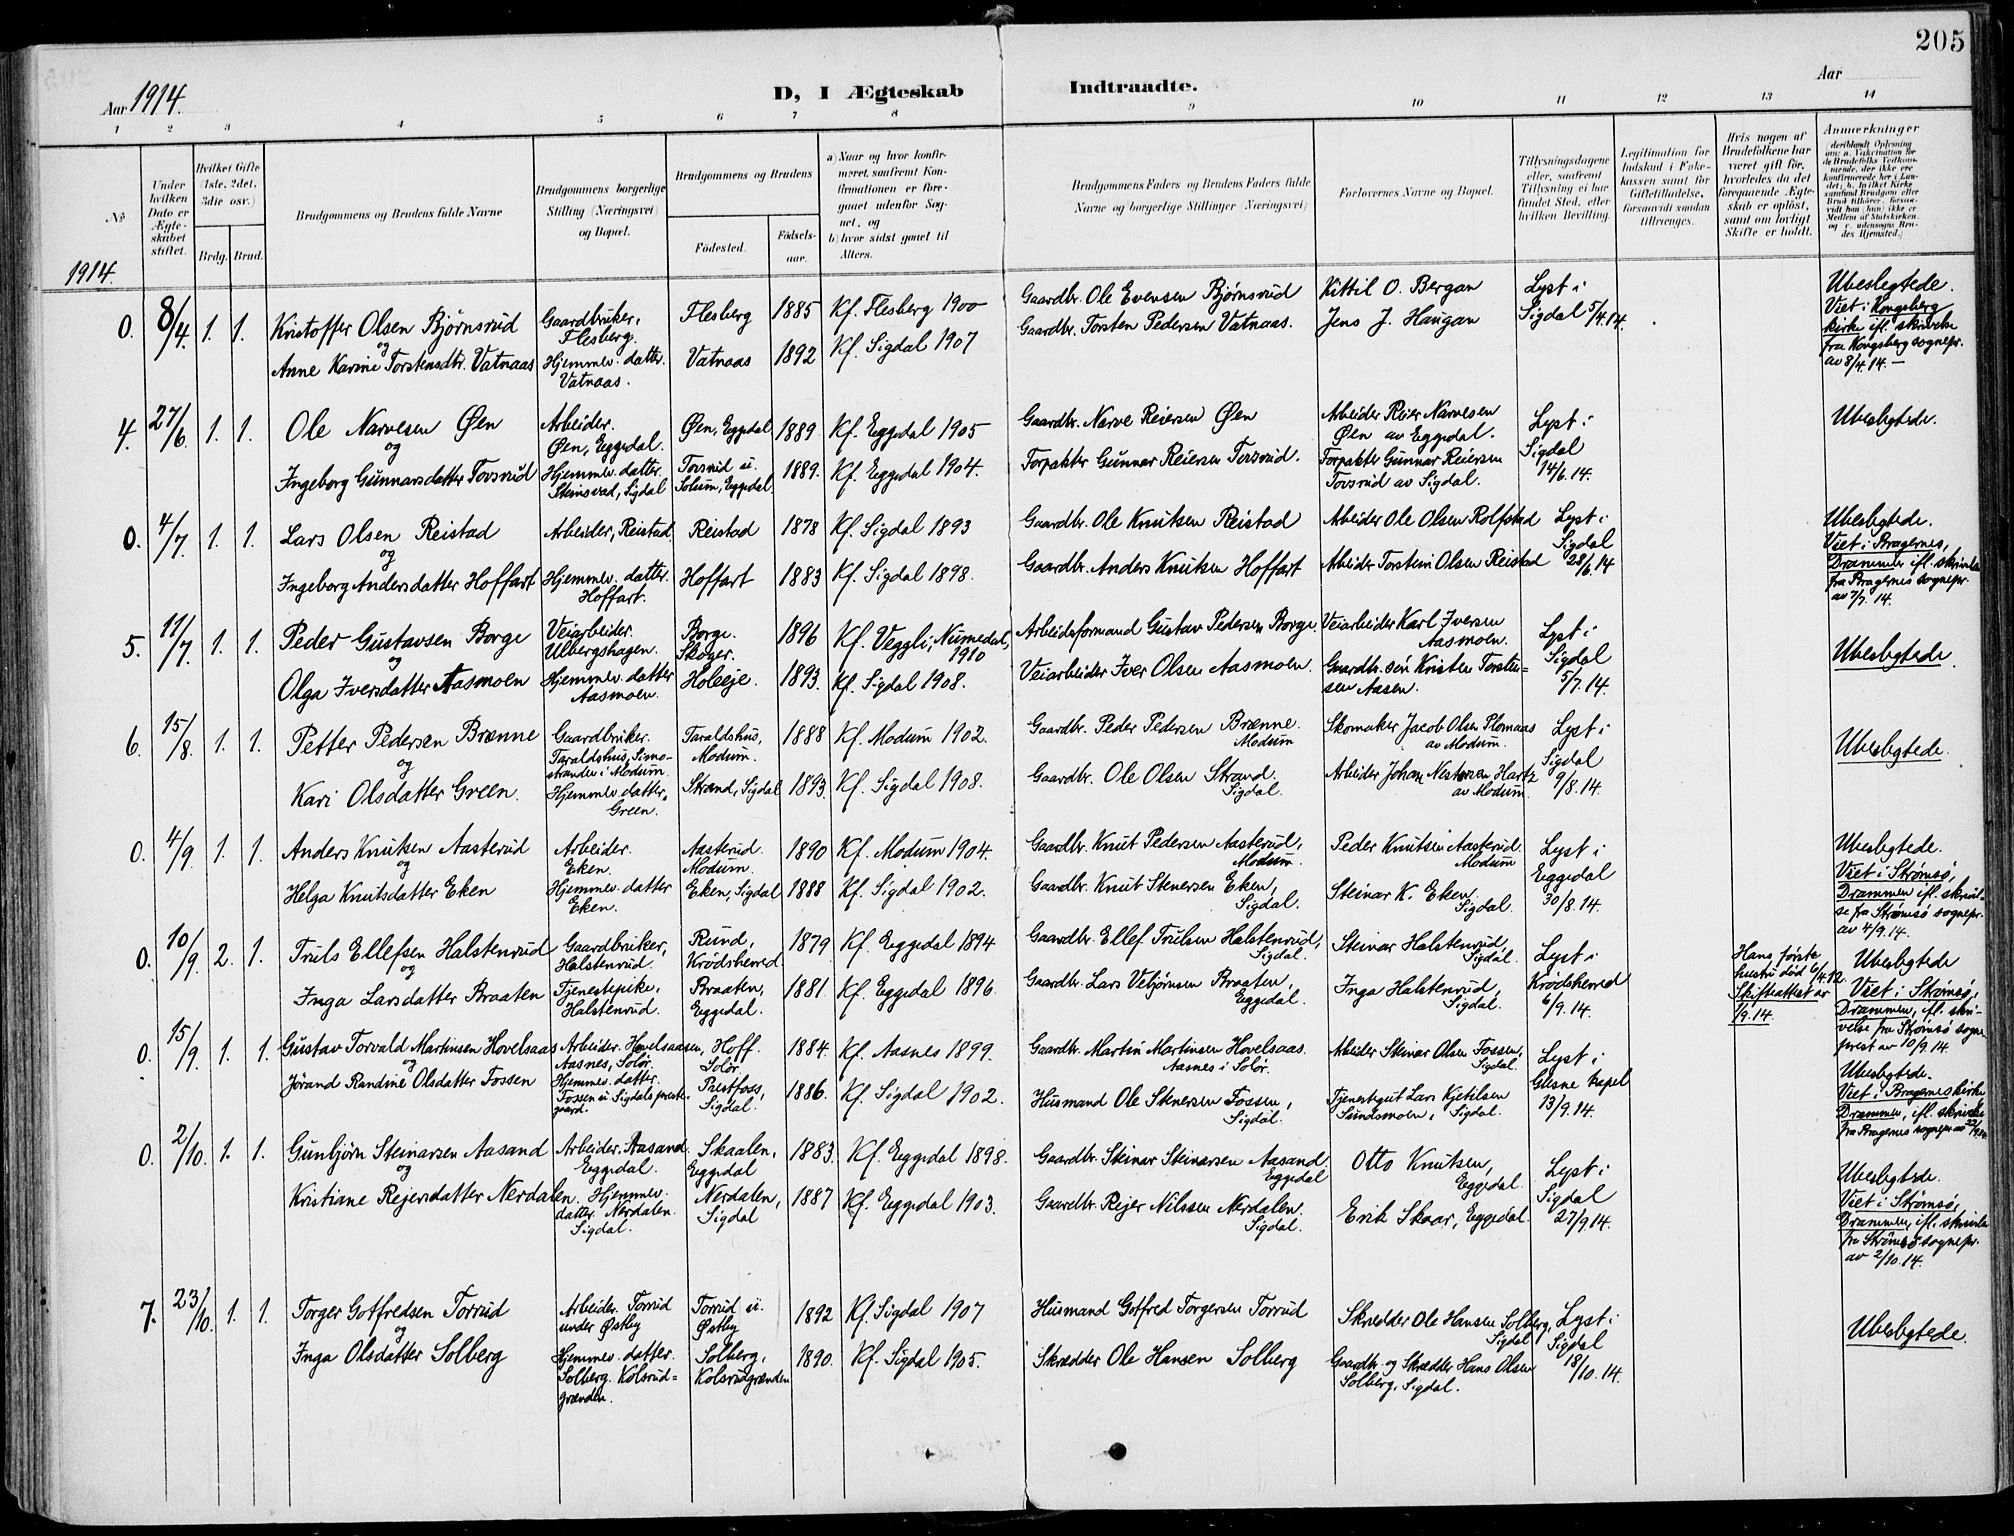 205
Aar 1914.
D, I Ægteskab Indtraadte.
Aar
1 2 3 4 5 6 7 8 9 10 11 12 13 14
No
Under hvilken Dato er Ægteskabet stiftet.
Hvilket Gifte (1ste, 2det, 3die osv.)
Brdg. Brud.
Brudgommens og Brudens fulde Navne
Brudgommens borgerlige Stilling (Næringsvei) og Bopæl.
Brudgommens og Brudens
Fødested.
Fødselsaar.
a) Naar og hvor konfirmeret, saafremt Konfirmationen er foregaaet udenfor Sognet, og
b) hvor sidst gaaet til Alters.
Brudgommens Faders og Brudens Faders fulde Navne og borgerlige Stillinger (Næringsvei)
Forlovernes Navne og Bopæl.
Tillysningsdagene eller, saafremt Tillysning ei har fundet Sted, efter hvilken Bevilling.
Legitimation for Indskud i Enkekassen samt for Giftetilladelse, forsaavidt saadan tiltrænges.
Hvis nogen af Brudefolkene har været gift før, hvorledes da det foregaaende Ægteskab er opløst, samt om lovligt Skifte er holdt.
Anmerkninger
1914.
0. 8/4. 1. 1. Kristoffer Olsen Bjørnsrud
og
Anne Karine Torstensdtr. Vatnaas
Gaardbruker, Flesberg.
Hjemmev. datter. Vatnaas.
Flesberg 1885 Kf. Flesberg 1900
Vatnaas 1892 Kf. Sigdal 1907
Gaardbr. Ole Evensen Bjørnsrud
Gaardbr. Torsten Pedersen Vatnaas.
Kittil O. Bergan
Jens J. Haugan
Lyst i
Sigdal 5/4.14.
Ubeslegtede.
Viet i Kongsberg
kirke ifl. skrivelse
fra Kongsberg sognepr.
av 8/4.14.—
4. 27/6. 1. 1. Ole Narvesen Øen
og
Ingeborg Gunnarsdatter Tovsrud
Arbeider.
Øen, Eggedal.
Hjemmev. datter.
Steinsvad, Sigdal
Øen, Eggedal 1889 Kf. Eggedal 1905
Tovsrud u. Solum, Eggedal. 1889. Kf. Eggedal 1904.
Gaardbr. Narve Reiersen Øen
Forpakter Gunnar Reiersen Tovsrud.
Arbeider Reier Narvesen
Øen av Eggedal.
Forpakter Gunnar Reiersen
Tovsrud av Sigdal.
Lyst i
Sigdal
14/6.14.
Ubeslegtede.
0. 4/7. 1. 1. Lars Olsen Reistad
og
Ingeborg Andersdatter Hoffart
Arbeider, Reistad
Hjemmev. datter.
Hoffart.
Reistad 1878 Kf. Sigdal 1893
Hoffart 1883 Kf. Sigdal 1898.
Gaardbr. Ole Knutsen Reistad
Gaardbr. Anders Knutsen Hoffart
Arbeider Ole Olsen Rolfstad
Arbeider Torstein Olsen Reistad
Lyst i
Sigdal
28/6.14
Ubeslegtede.
Viet i Bragernes,
Drammen ifl. skrivelse
fra Bragernes sognepr.
av 7/7.14.
5. 11/7. 1. 1. Peder Gustavsen Borge
og
Olga Iversdatter Aasmoen
Veiarbeider.
Ulbergshagen.
Hjemmev. datter
Aasmoen.
Borge.
Skoger. 1896 Kf. Veggli, Numedal, 1910
Holeeje. 1893. Kf. Sigdal 1908.
Arbeidsformand Gustav Pedersen Borge.
Veiarbeider Iver Olsen Aasmoen.
Veiarbeider Karl Iversen
Aasmoen.
Gaardbr. søn Kristen Torsten-
sen Aasen.
Lyst i
Sigdal
5/7.14.
Ubeslegtede
6. 15/8. 1. 1. Petter Pedersen Brænne
og
Kari Olsdatter Green.
Gaardbruker.
Taraldshus, Simo-
stranden i Modum.
Hjemmev. datter.
Green.
Taraldshus,
Modum. 1888 Kf. Modum 1902.
Strand, Sigdal 1893 Kf. Sigdal 1908.
Gaardbr. Peder Pedersen Brænne.
Modum
Gaardbr. Ole Olsen Strand.
Sigdal.
Skomaker Jacob Olsen Plomaas
av Modum.
Arbeider Johan Nestersen Hartz
av Modum.
Lyst i
Sigdal
9/8.14.
Ubeslegtede.
0. 4/9. 1. 1. Anders Knutsen Aasterud
og
Helga Knutsdatter Eken
Arbeider.
Eken.
Hjemmev. datter
Eken.
Aasterud.
Modum. 1890 Kf. Modum 1904.
Eken, Sigdal 1888 Kf. Sigdal 1902.
Gaardbr. Knut Pedersen Aasterud,
Modum.
Gaardbr. Knut Stenersen Eken,
Sigdal.
Peder Knutsen Aasterud.
Modum
Steinar K. Eken,
Sigdal.
Lyst i
Eggedal
30/8.14.
Ubeslegtede.
Viet i Strømsø,
Drammen ifl. skrivel-
se fra Strømsø sognepr.
av 4/9.14.
0. 10/9. 2. 1. Truls Ellefsen Halstenrud
og
Inga Larsdatter Braaten
Gaardbruker,
Halstenrud.
Tjenestepike,
Halstenrud.
Rund,
Krødsherred 1879. Kf. Eggedal 1894
Braaten,
Eggedal. 1881. Kf. Eggedal 1896.
Gaardbr. Ellef Trulsen Halstenrud,
Sigdal.
Gaardbr. Lars Vebjørnsen Braaten,
Eggedal.
Steinar Halstenrud,
Sigdal.
Inga Halstenrud,
Sigdal.
Lyst i
Krødsherred
6/9.14.
Hans første
hustru død 6/4.12.
Skifteattest av
1/9.14.
Ubeslegtede
Viet i Strømsø,
Drammen, ifl. skri-
velse fra Strømsø sogne-
prest av 10/9.14.
0. 15/9. 1. 1. Gustav Torvald Martinsen Hovelsaas
og
Jørand Randine Olsdatter Fossen
Arbeider. Hovelsaasen,
Aasnes, Solør.
Hjemmev. datter.
Fossen u. Sigdals preste-
gaard.
Hoff.
Solør. 1884. Kf. Aasnes 1899.
Prestfoss,
Sigdal. 1886. Kf. Sigdal 1902.
Gaardbr. Martin Martinsen Hovelsaas.
Aasnes i Solør.
Husmand Ole Stenersen Fossen,
Sigdal.
Arbeider Steinar Olsen Fossen,
Sigdal.
Tjenestegut Lars Kjetilsen
Sundsmoen, Sigdal.
Lyst i
Glesne kapel
13/9.14.
Ubeslegtede.
Viet i Bragernes kirke
Drammen, ifl. skrivelse
fra Bragernes sognepr. av
0. 2/10. 1. 1. Gunbjørn Steinarsen Aasand
og
Kristiane Rejersdatter Nerdalen.
Arbeider. Aasand.
Eggedal.
Hjemmev.
datter. Nerdalen.
Sigdal.
Skaalen,
Eggedal 1883. Kf. Eggedal 1898.
Nerdalen,
Sigdal 1887 Kf. Eggedal 1903.
Gaardbr. Steinar Steinarsen Aasand.
Eggedal
Gaardbr. Rejer Nilssen Nerdalen.
Sigdal.
Otto Knutsen,
Eggedal.
Erik Skaar, Eggedal.
Lyst i
Sigdal
27/9.14.
Ubeslegtede.
Viet i Strømsø,
Drammen, ifl. skrivelse
fra Strømsø sognepr.
av 2/10.14.
7. 23/10. 1. 1. Torger Gotfredsen Torrud
og
Inga Olsdatter Solberg
Arbeider. Torrud
under Østby
Hjemmev. datter.
Solberg. Kolsrud-
grænden.
Torrud u.
Østby 1892 Kf. Sigdal 1907
Solberg,
Kolsrudgrænden 1890. Kf. Sigdal 1905.
Husmand Gotfred Torgersen Torrud
Skrædder Ole Hansen Solberg
Skrædder Ole Hansen Solberg,
Sigdal
Gaardbr. og Skrædder Hans Olsen
Solberg, Sigdal.
Lyst i
Sigdal
18/10.14.
Ubeslegtede.